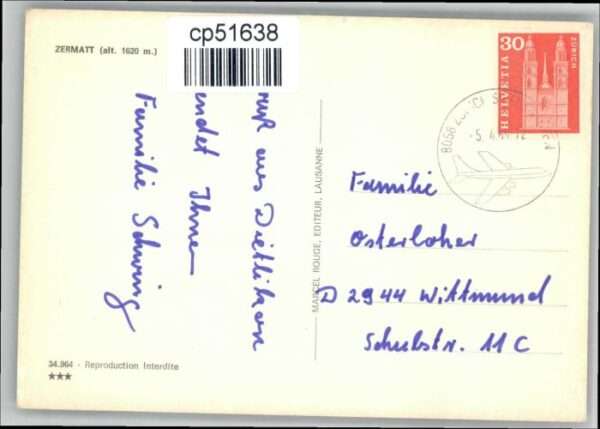 ZERMATT (alt. 1620 m.)
cp51638
ruß aus Dietlikon
endet Ihnen
Familie Schwing
34.964 - Reproduction Interdite
★★★
MARCEL ROUGE, EDITEUR, LAUSANNE
30
HELVETIA
ZÜRICH
8058
Familie
Osterloher
D 2944 Wittmund
Schulstr. 11 C